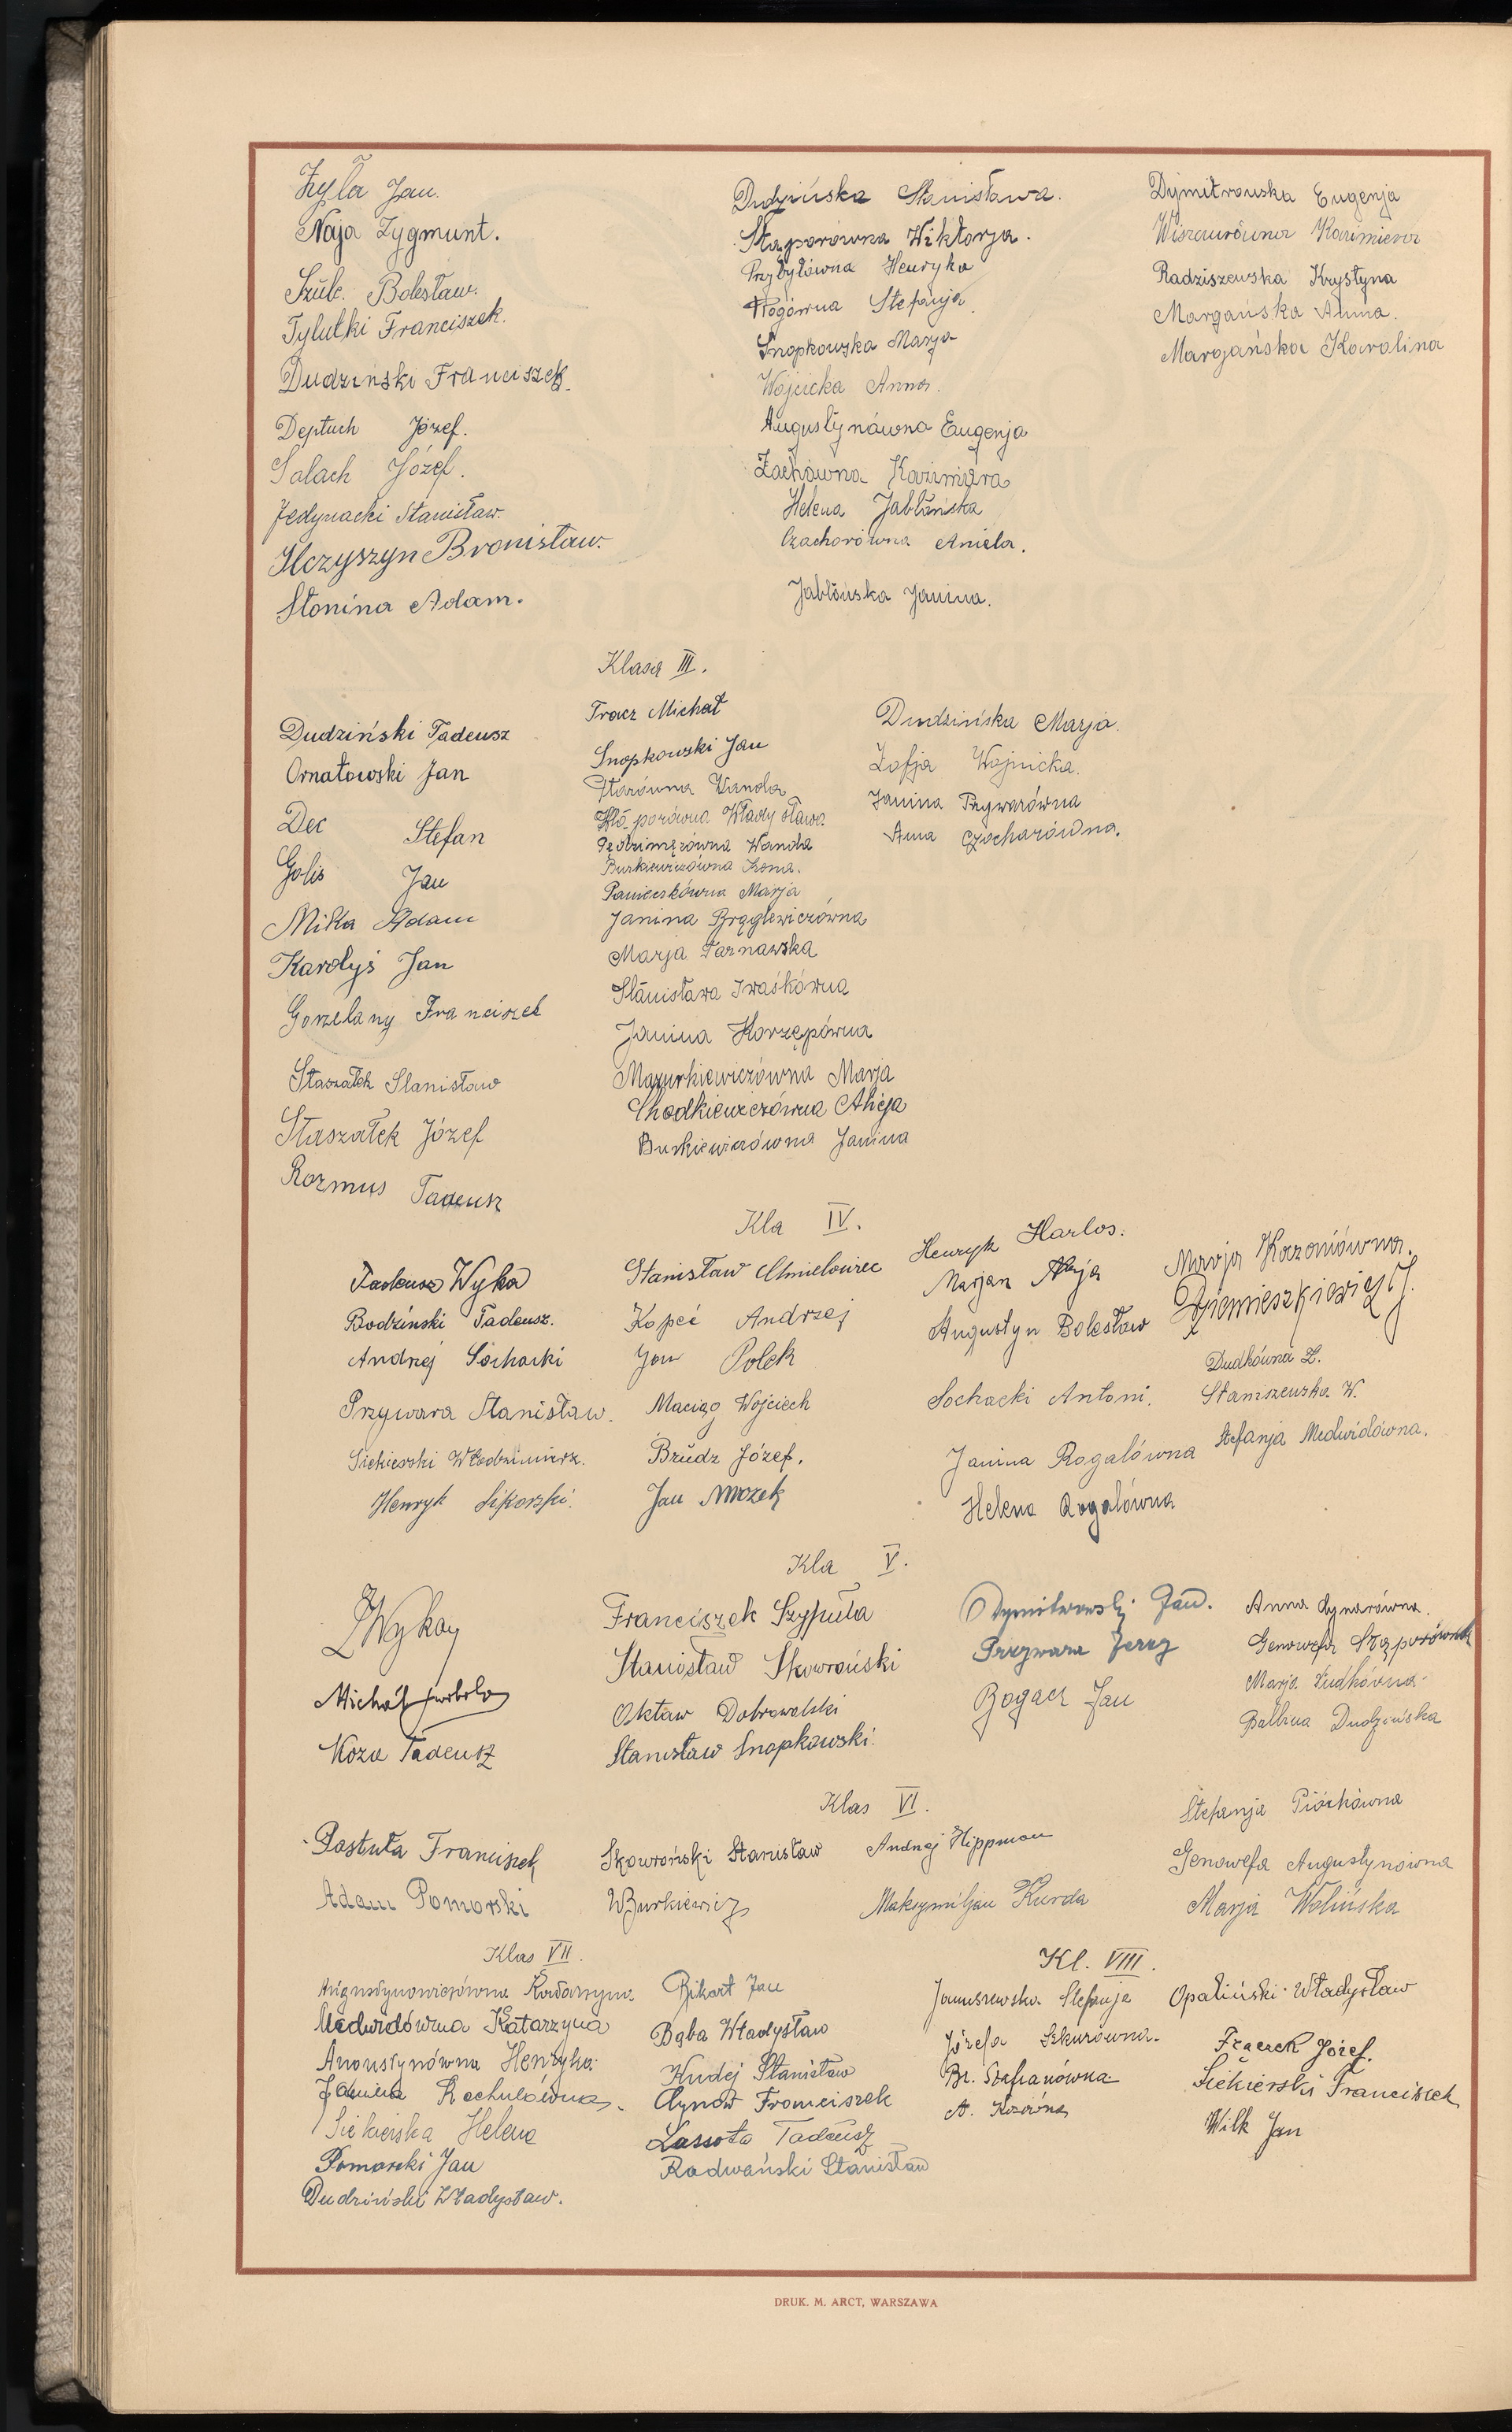 Żyła Jan.
Naja Zygmunt.
Szulc. Bolesław.
Tylutki Franciszek.
Dudziński Franciszek.
Deptuch Józef.
Salach Józef.
Jedynacki Stanisław.
Ilczyszyn Bronisław.
Słonina Adam.
Dudzińska Stanisława.
Stąporówna Wiktorja.
Przybyłówna Henryka
Rogówna Stefanja.
Snopkowska Marja
Wójcicka Anna.
Augustynówna Eugenja
Żachówna Kazimiera
Helena Jabłońska
Czachorówna Aniela.
Jabłońska Janina.
Dymitrowska Eugenja
Kazimiera
Radziszewska Krystyna
Margańska Anna.
Margańska Karolina
Klasa III.
Dudziński Tadeusz
Ornatowski Jan
Dec Stefan
Golis Jan
Mika Adam
Kardyś Jan
Gorzelany Franciszek
Staszałek Stanisław
Staszałek Józef
Rozmus Tadeusz
Tracz Michał
Snopkowski Jan
Wanda
Władysława
Wanda
Burkiewiczówna Irena.
Marja
Janina Brąglewiczówna
Marja Tarnawska
Stanisława Iwaśkówna
Janina Korzępówna
Mazurkiewiczówna Marja
Chodkiewiczówna Alicja
Burkiewiczówna Janina
Dudzińska Marja.
Zofja Wojnicka.
Janina Przywarówna
Anna Czocharówna.
Kla IV.
Tadeusz Wyka
Bodziński Tadeusz.
Andrzej Sochacki
Przywara Stanisław.
Siekierski Włodzimierz.
Henryk Sikorski.
Stanisław Chmielowiec
Kopeć Andrzej
Jan Polek
Maciąg Wojciech
Brudz Józef.
Jan Mrozek
Henryk Harlos.
Marjan
Augustyn Bolesław
Sochacki Antoni.
Janina Rogalówna
Helena Rogalówna
Marja Kazaniówna.
Dudkówna Z.
Staniszewska W.
Stefanja Medwidówna.
Kla V.
Michał
Koza Tadeusz
Franciszek Szypuła
Stanisław Skowroński
Oktaw Dobrowolski
Stanisław Snopkowski.
Dymitrowski Jan.
Przywara Jerzy
Bogacz Jan
Anna Cynarówna.
Genowefa Stąporówna
Marja Dudkówna.
Balbina Dudzińska
Klas VI.
Pastuła Franciszek
Adam Pomorski
Skowroński Stanisław
WBurkiewicz
Andrzej Hippman
Maksymiljan Kurda
Stefanja Piórkówna
Genowefa Augustynówna
Marja Wolińska
Klas VII.
Augustynowiczówna Katarzyna
Medwidówna Katarzyna
Augustynówna Henryka.
Janina
Siekierska Helena
Pomorski Jan
Dudziński Władysław.
Rikart Jan
Bąba Władysław
Kudej Stanisław
Cynow Franciszek
Lassota Tadeusz
Radwański Stanisław
Kl. VIII.
Januszewska Stefanja
Józefa Szkurówna.
Br. Stefanówna
A. Kozówna
Opaliński Władysław
Frączek Józef.
Siekierski Franciszek
Wilk Jan
DRUK. M. ARCT, WARSZAWA